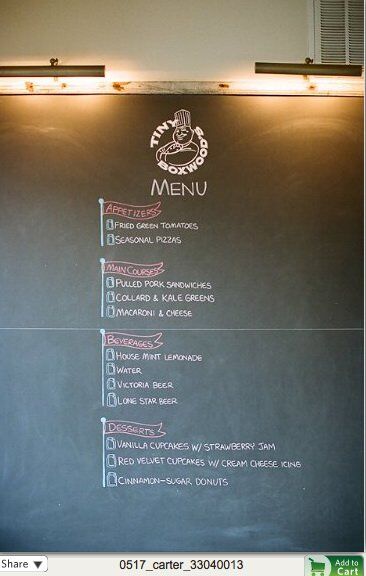 TINY
BOXWOODS
MENU
APPETIZERS
FRIED GREEN TOMATOES
SEASONAL PIZZAS
MAIN COURSES
PULLED PORK SANDWICHES
COLLARD & KALE GREENS
MACARONI & CHEESE
BEVERAGES
HOUSE MINT LEMONADE
WATER
VICTORIA BEER
LONE STAR BEER
DESSERTS
VANILLA CUPCAKES W/ STRAWBERRY JAM
RED VELVET CUPCAKES W/ CREAM CHEESE ICING
CINNAMON-SUGAR DONUTS
Share ▼ 0517_carter_33040013 Add to
Cart